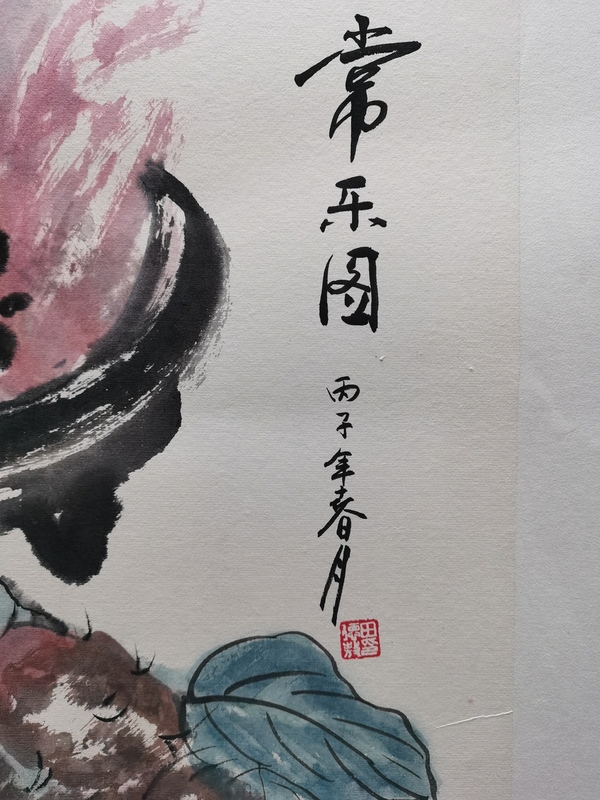 常乐图
丙子年春月